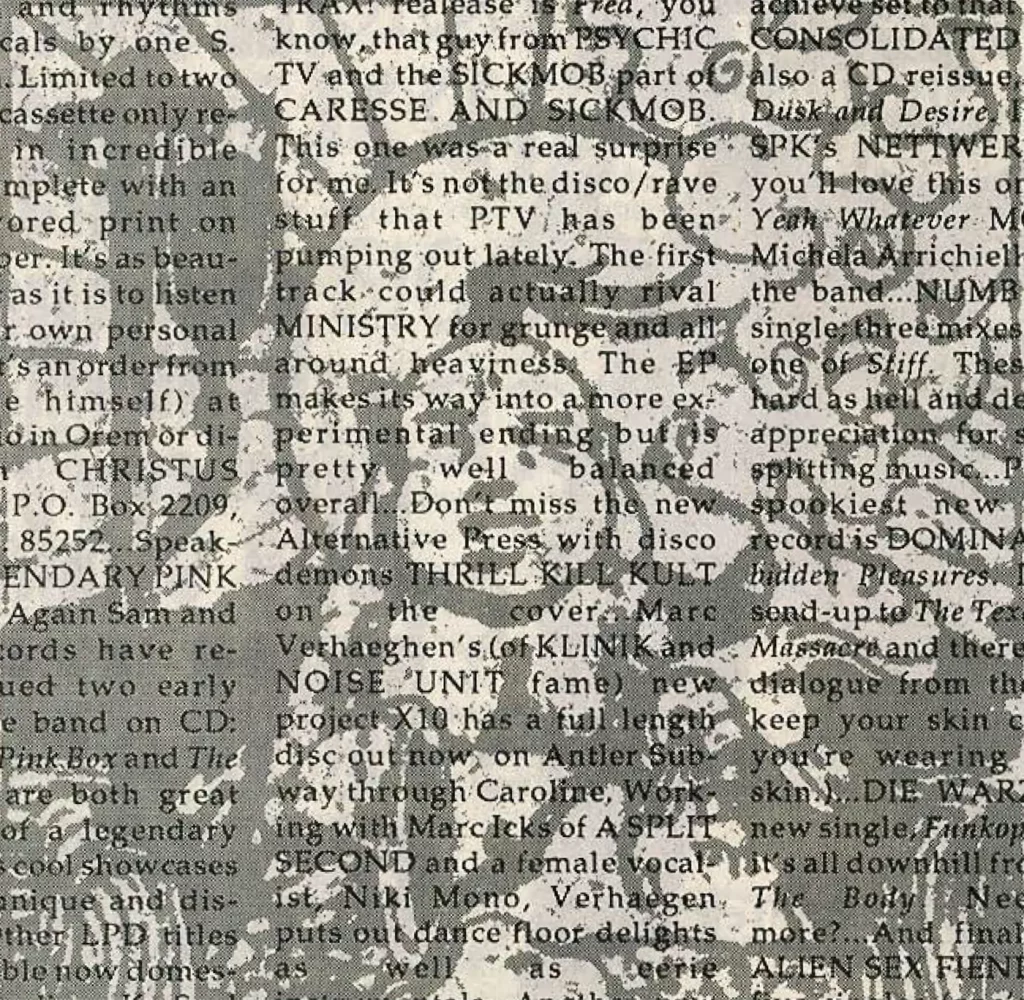 and rhythms
cals by one S.
. Limited to two
cassette only re-
in incredible
mplete with an
ored print on
per. It's as beau-
as it is to listen
r own personal
t's an order from
e himself) at
io in Orem or di-
CHRISTUS
P.O. Box 2209,
. 85252...Speak-
ENDARY PINK
Again Sam and
cords have re-
ued two early
e band on CD:
Pink Box and The
are both great
of a legendary
s cool showcases
nique and dis-
ther LPD titles
ble now domes-
TRAX! realease is Fred, you
know, that guy from PSYCHIC
TV and the SICKMOB part of
CARESSE AND SICKMOB.
This one was a real surprise
for me. It's not the disco/rave
stuff that PTV has been
pumping out lately. The first
track could actually rival
MINISTRY for grunge and all
around heaviness. The EP
makes its way into a more ex-
perimental ending but is
pretty well balanced
overall...Don't miss the new
Alternative Press with disco
demons THRILL KILL KULT
on the cover...Marc
Verhaeghen's (of KLINIK and
NOISE UNIT fame) new
project X10 has a full length
disc out now, on Antler Sub-
way through Caroline, Work-
ing with Marc Icks of A SPLIT
SECOND and a female vocal-
ist, Niki Mono, Verhaegen
puts out dance floor delights
as well as eerie
achieve set to that
CONSOLIDATED
also a CD reissue,
Dusk and Desire.
SPK's NETTWER
you'll love this on
Yeah Whatever MC
Michela Arrichiell
the band...NUMB
single; three mixes
one of Stiff. Thes
hard as hell and de
appreciation for s
splitting music...P
spookiest new
record is DOMINA
bidden Pleasures.
send-up to The Tex
Massacre and there
dialogue from the
keep your skin c
you're wearing
skin.)...DIE WARZ
new single, Funkop
it's all downhill fro
The Body Nee
more?...And final
ALIEN SEX FIEND